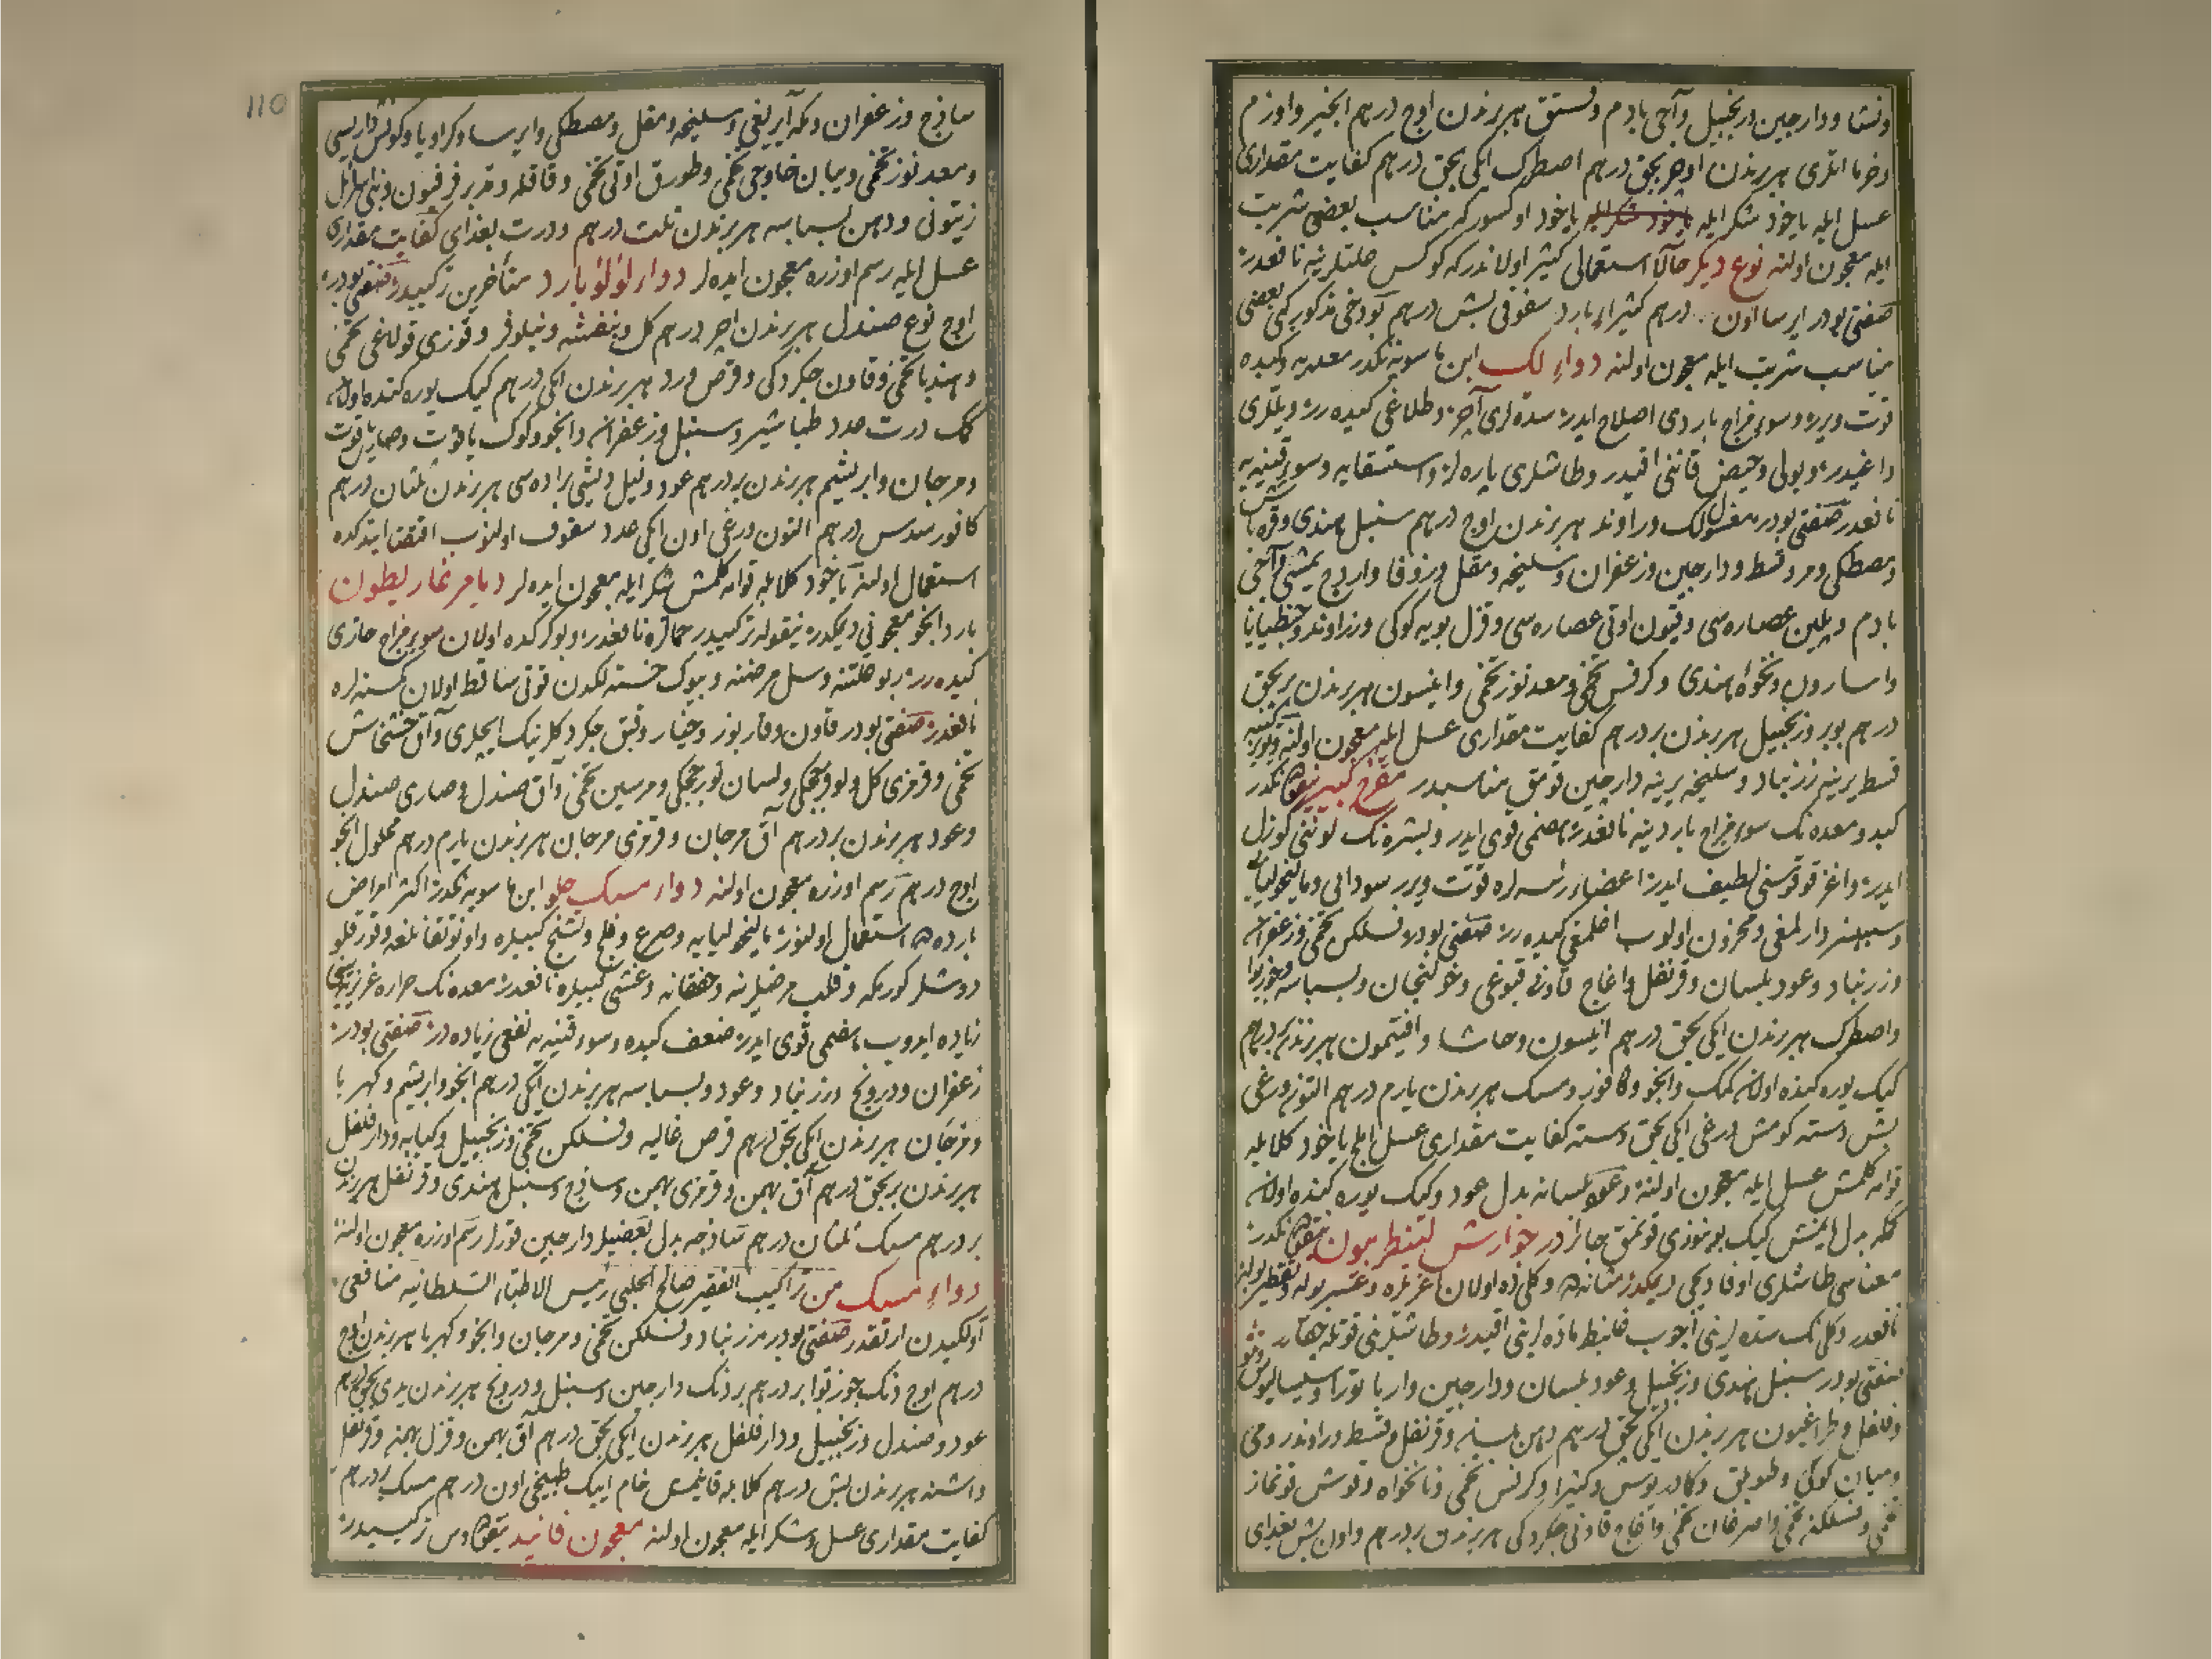 ونشا ودارچین وزنجبیل وآجی بادم وفستق هر برندن اوچ درهم انجیر واوزم
وخرما اتلری هر برندن اوچر بچق درهم اصطرک ایکی بچق درهم کفایت مقداری
عسل ایله یاخود شکر ایله یاخود شکر ایله یاخود اوکسورکه مناسب بعضی شربت
ایله معجون اولنه نوع دیگر حالا استعمالی کثیر اولاندر که کوکس علتلرینه نافعدر
صنعتی بودر ایرسا اون درهم کثیراء بارد سفوفی بش درهم بو دخی مذکور کبی بعضی
مناسب شربت ایله معجون اولنه دواء لک ابن ماسویه نکدر معدیه وکبده
قوت ویرر وسوء مزاج باردی اصلاح ایدر سده لری آچر وطلاغی کیده رر ویللری
داغیدر وبولی وحیض قاننی اقیدر وطاشلری پاره لر واستسقایه وسوء قنیه یه
نافعدر صنعتی بودر مغسول لک وراوند هر برندن اوچ درهم سنبل هندی
ومصطکی ومر وقسط ودارچین وزعفران وسلیخه ومقل وزوفا واردج یمشی وآجی
بادم وپلین عصاره سی وقیون اوتی عصاره سی وقزل بویه کوکی وزراوند وجنطیانا
واسارون ونخواه هندی وکرفس تخمی ومعدنوز تخمی وانیسون هر برندن بر بچق
درهم بوبر وزنجبیل هر برندن بر درهم کفایت مقداری عسل ایله معجون اولنه
قسط یرینه زرنباد وسلیخه یرینه دارچین قومق مناسبدر مفرح کبیر نکدر
کبد ومعده نک سوء مزاج باردینه نافعدر هضمی قوی ایدر وبشره نک لوننی کوزل
ایدر واغز قوقوسنی لطیف ایدر اعضاء رئیسه لره قوت ویرر سودایی ومالیخولیایی
وسببسز دارلمغی ومحزون اولوب اغلمغی کیده رر صنعتی بودر فسلکن تخمی وزعفران
وزرنباد وعود بلسان وقرنفل واغاج قاونی قبوغی وخولنجان وبسباسه وجوزبوا
واصطرک هر برندن ایکی بچق درهم انیسون وحاشا وافتیمون هر برندن بر درهم
کیک یوره کنده اولان کمک وانجو وکافور ومسک هر برندن یارم درهم التون ورغی
بش دسته کومش ورغی ایکی بچق دسته کفایت مقداری عسل ایله یاخود کلابله
قوامه کلمش عسل ایله معجون اولنه وعود بلسانه بدل عود وکیک یوره کنده اولان
کمکه بدل ایلمش کیک بوینوزی قونمق جائزدر جوارش لتنطریبون نکدر
معناسی طاشلری اوفادیجی دیمکدر مثانه ده وکلیه ده اولان اغریلره وعسر بوله وتقطیر بوله
نافعدر وکلی نک سده لرینی آچوب غلیظ ماده لرینی اقیدر وطاشلرینی قوتله چقارر
صنعتی بودر سنبل هندی وزنجبیل وعود بلسان ودارچین
وفلفل هر برندن ایکی بچق درهم دهن بلسان وقرنفل وقسط وراوند رومی
ومیان کوکی وکثیرا وکرفس تخمی ونانخواه
تخمی وفسلکن تخمی وآغاج قاونی چکردکی هر برندن بر درهم واون بش بغدای
110
ساذج وزعفران وکه آیر یغی وسلیخه ومقل ومصطکی وایرسا وکراویا
ومعدنوز تخمی ویبان خاوجی تخمی وطورق اوتی تخمی وقاقله ومدبر فرفیون
زیتونی ودهن بسباسه هر برندن ثلث درهم ودرت بغدای کفایت مقداری
عسل ایله رسم اوزره معجون ایده لر دواء لؤلؤ بارد متأخرین ترکیبیدر صنعتی بودر
اوچ نوع صندل هر برندن اچر درهم کل وبنفشه ونیلوفر وقوزی قولاغی تخمی
وهندبا تخمی وقاون چکردکی وقرص ورد هر برندن ایکی درهم کیک یوره کنده اولان
کمک درت عدد طباشیر وسنبل وزعفران وانجو وکوک یاقوت وصاری یاقوت
ومرجان وابریشیم هر برندن بر درهم عود وفیل دیشی براده سی هر برندن ثلثان درهم
کافور سدس درهم التون ورغی اون ایکی عدد سفوف اولنوب اقتضا ایتدکده
استعمال اولنه یاخود کلابله قوامه کلمش شکر ایله معجون ایده لر دیامرغاریطون
بارد انجو معجونی دیمکدر نیقوله ترکیبیدر حمالره نافعدر وبوکرکده اولان سوء مزاج حارّی
کیده رر ربو علتنه وسل مرضنه وبیوک خسته لکدن قوتی ساقط اولان کمسنه لره
نافعدر صنعتی بودر قاون وقارپوز وخیار وقبق چکردکلرینک ایچلری وآق خشخاش
تخمی وقرمزی کل ونیلوفر چچکی ولسان ثور چچکی ومرسین تخمی وآق صندل وصاری صندل
وعود هر برندن بر درهم آق مرجان وقرمزی مرجان هر برندن یارم درهم محلول انجو
اوچ درهم رسم اوزره معجون اولنه دواء مسک حلو ابن ماسویه نکدر اکثر امراض
بارده ده استعمال اولنور مالیخولیایه وصرع وفلج وتشنج کبیلره
دوشلر کورمکه وقلب مرضلرینه وخفقانه وغشی کبیلره نافعدر معده نک حراره غریزیه سنی
زیاده ایدوب هضمی قوی ایدر ضعف کبده وسوء قنیه یه نفعی زیاده در صنعتی بودر
زعفران ودرونج وزرنباد وعود وبسباسه هر برندن ایکی درهم انجو وابریشم وکهربا
ومرجان هر برندن ایکی بچق درهم قرص غالیه وفسلکن تخمی وزنجبیل وکبابه ودارفلفل
هر برندن بر بچق درهم آق بهمن وقرمزی بهمن وساذج وسنبل هندی وقرنفل هر برندن
بر درهم مسک ثلثان درهم ساذجه بدل بعضیلر دارچین قورلر رسم اوزره معجون اولنه
دواء مسک من تراکیب الفقیر صالح الحلبی رئیس الاطباء السلطانیه منافعی
اولکیدن ارتقدر صنعتی بودر زرنباد وفسلکن تخمی ومرجان وانجو وکهربا هر برندن اوچ
درهم اوچ دنک جوزبوا بر درهم بر دنک دارچین وسنبل ودرونج هر برندن یدی بچق درهم
عود وصندل وزنجبیل ودارفلفل هر برندن ایکی بچق درهم آق بهمن وقزل بهمن وقرنفل
واشنه هر برندن بش درهم کلابله قاینمش خام ایپک طبیخی اون درهم مسک بر درهم
کفایت مقداری عسل وشکر ایله معجون اولنه معجون فانید نیقولاوس ترکیبیدر